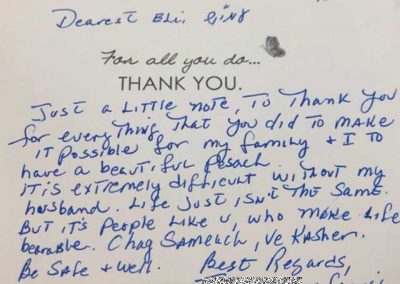 Dearest
For all you do...
THANK YOU.
Just a little note, to Thank you
for everything that you did to make
it possible for my family + I to
have a beautiful Pesach.
It is extremely difficult without my
husband. Life just isn't the same.
But it's people like u, who make life
bearable. Chag Sameach, Ve Kasher.
Be Safe + well. Best Regards,